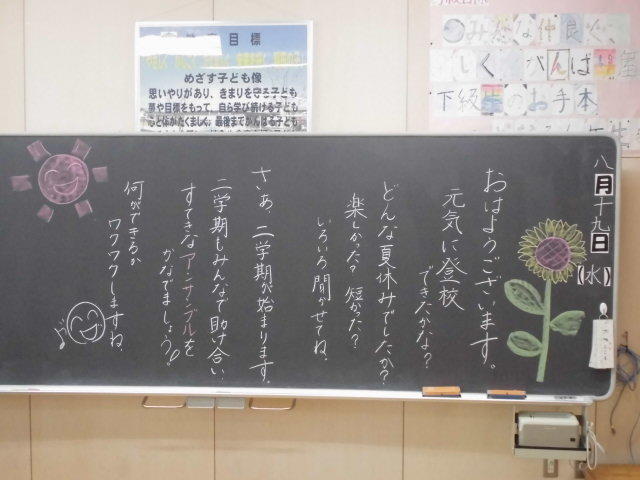 目標
めざす子ども像
思いやりがあり、きまりを守る子ども
夢や目標をもって、自ら学び続ける子ども
心と体がたくましく、最後までがんばる子ども
みんな仲良く、
しく がんば
下級生のお手本
八月十九日【水】
おはようございます。
元気に登校
できたかな？
どんな夏休みでしたか？
楽しかった？短かった？
いろいろ聞かせてね。
さあ、二学期が始まります。
二学期もみんなで助け合い、
すてきなアンサンブルを
かなでましょう。
何ができるか
ワクワクしますね。